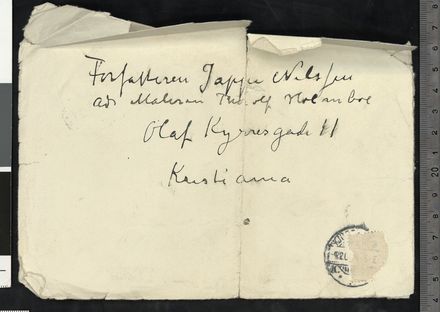 Forfatteren Jappe Nilssen
adr Maleren Thorolf Holmboe
Olaf Kyrresgade 11
Kristiania